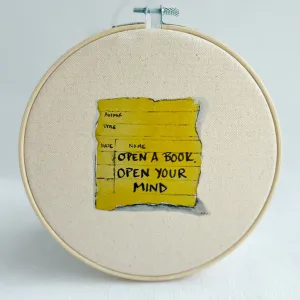 AUTHOR
TITLE
DATE NAME
OPEN A BOOK,
OPEN YOUR
MIND